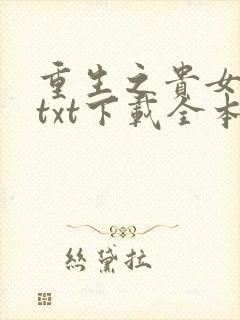 重生之貴女
txt下載全本
絲黛拉